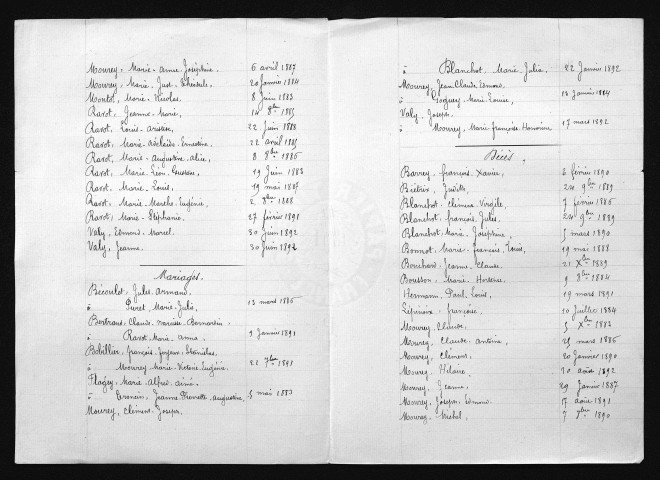 Mourey, Marie-Anne-Joséphine, 6 avril 1887
Mourey, Marie, Just, 20 Janvier 1884
Montot, Marie, Nicolas, 8 Juin 1883
Ravot, Jeanne-Marie, 14 8bre 1885
Ravot, Louis-Aristide, 22 Juin 1888
Ravot, Marie-Adélaïde-Ernestine, 22 avril 1885
Ravot, Marie-Augustine-Alice, 8 8bre 1886
Ravot, Marie-Léon-Gustave, 19 Juin 1883
Ravot, Marie-Louis, 19 mai 1885
Ravot, Marie-Marthe-Eugénie, 2 8bre 1888
Ravot, Marie-Stéphanie, 27 février 1891
Valy, Edmond-Marcel, 30 Juin 1892
Valy, Jeanne, 30 Juin 1892
Mariages.
Bécoulet, Jules, Armand,
à Puret, Marie-Julie, 13 mars 1886
Bertrand, Claude-Narcisse-Bernardin,
à Ravot, Marie-Anna, 9 Janvier 1891
Bobillier, François-Joseph-Stanislas,
à Mourey, Marie-Victorine-Eugénie, 22 7bre 1891
Flagey, Marie-Alfred-Aimé,
à Jeanne-Pierrette, Augustine, 5 mai 1883
Mourey, Clément-Joseph,
à Blanchot, Marie-Julie, 22 Janvier 1892
Mourey, Jean-Claude-Edmond,
à Marie-Louise, 12 Janvier 1884
Valy, Joseph,
à Mourey, Marie-Françoise-Honorine, 17 mars 1892
Décès.
Barrey, François-Xavier, 2 février 1890
Judith, 24 9bre 1889
Blanchot, Clément-Virgile, 7 février 1886
Blanchot, François-Jules, 24 9bre 1889
Blanchot, Marie-Joséphine, 5 mars 1890
Bonnot, Marie-François-Louis, 19 mai 1888
Bouchard, Jeanne-Claude, 21 Xbre 1889
Bousson, Marie-Hortense, 9 8bre 1884
Hermann, Paul-Louis, 19 mars 1891
Lépinoir, Françoise, 20 Juillet 1884
Mourey, Claude, 5 Xbre 1883
Mourey, Claude-Antoine, 25 mars 1886
Mourey, Clément, 20 Janvier 1890
Mourey, Hilaire, 20 août 1892
Mourey, Jeanne, 29 Janvier 1887
Mourey, Joseph-Edmond, 17 août 1891
Mourey, Michel, 7 7bre 1890